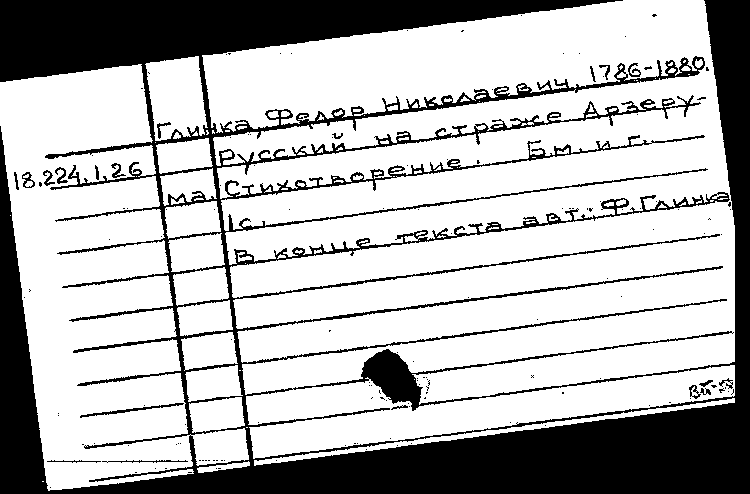 Глинка, Федор Николаевич, 1786-1880.
18.224.1.26
Русский на страже Арзеру-
ма. Стихотворение. Б.м. и г.
1с.
В конце текста авт.: Ф.Глинка